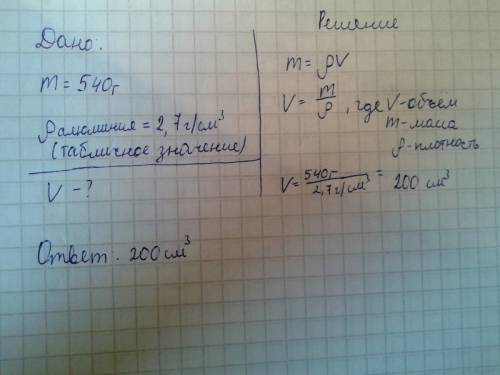 Дано:
m = 540г
ρ алюминия = 2,7 г/см³
(табличное значение)
V - ?
Ответ: 200 см³
Решение
m = ρV
V = m/ρ, где V - объем
m - маса
ρ - плотность
V = 540г / 2,7 г/см³ = 200 см³